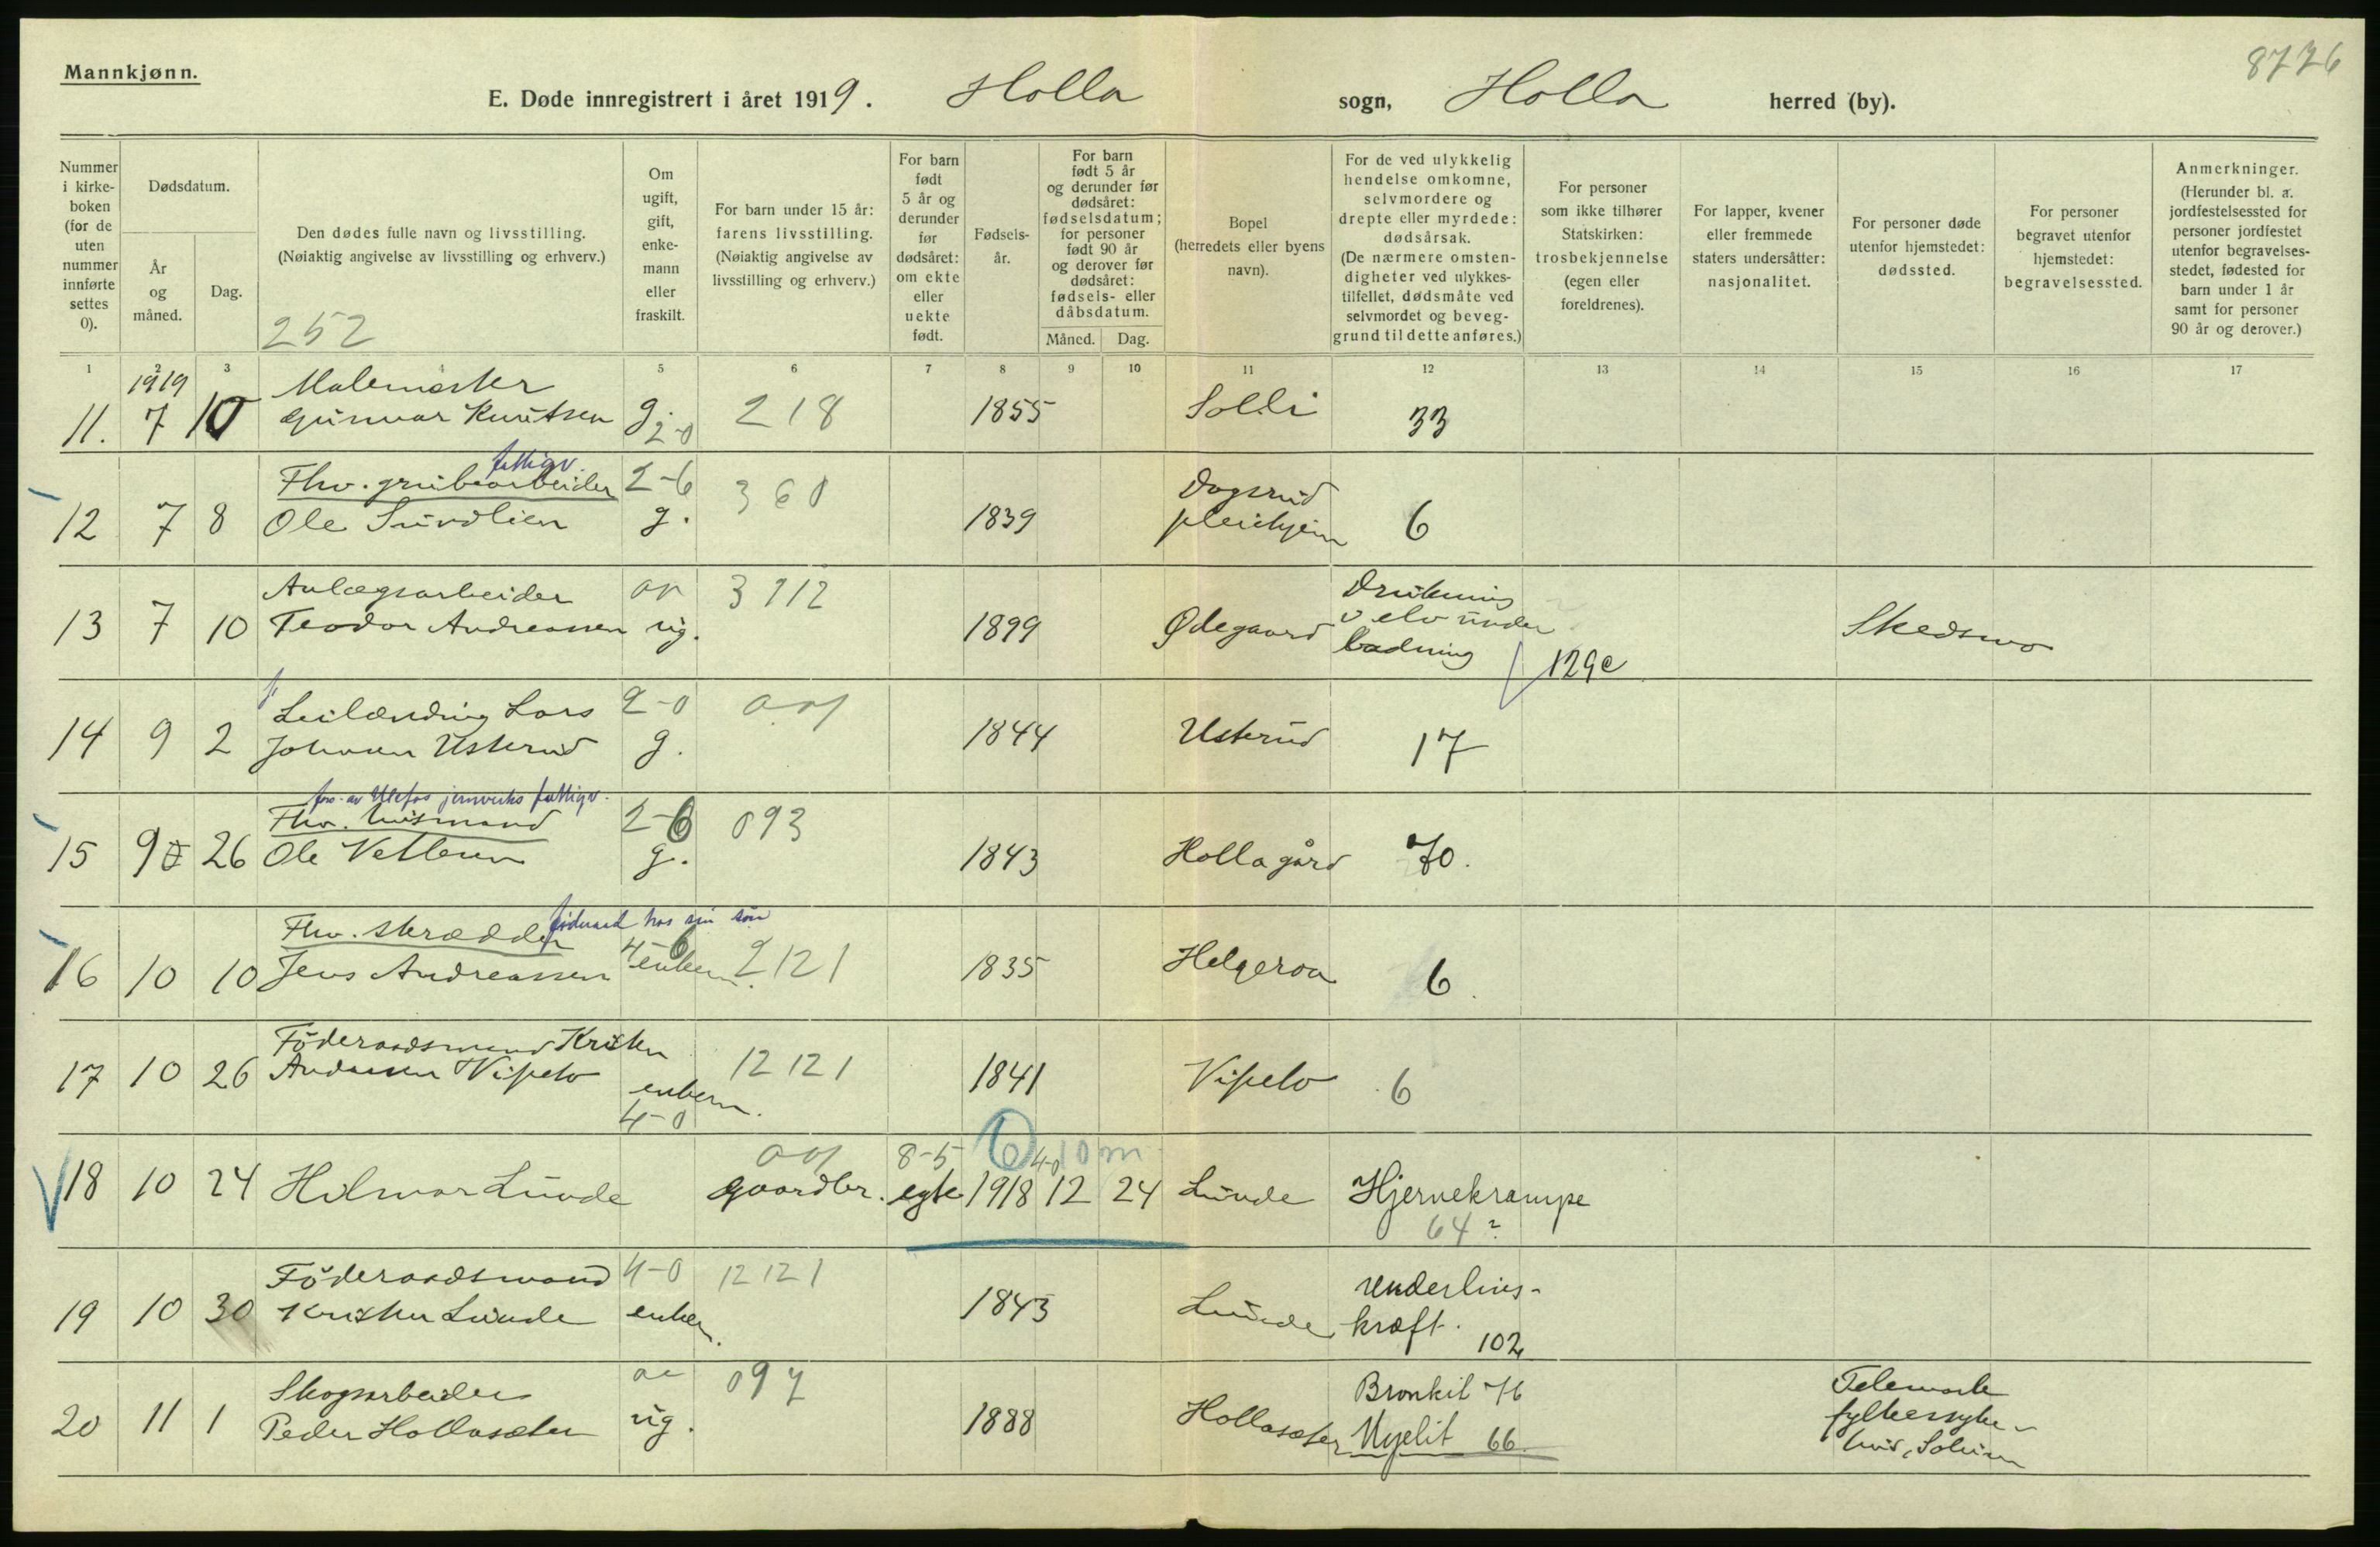 8776
Mannkjønn.
E. Døde innregistrert i året 1919. Holla sogn, Holla herred (by).
Nummer i kirke-boken (for de uten nummer innførte settes 0).
Dødsdatum.
År og måned.
Dag.
Den dødes fulle navn og livsstilling.
(Nøiaktig angivelse av livsstilling og erhverv.)
252
Om ugift, gift, enke-mann eller fraskilt.
For barn under 15 år: farens livsstilling.
(Nøiaktig angivelse av livsstilling og erhverv.)
For barn født 5 år og derunder før dødsåret: om ekte eller uekte født.
Fødsels-år.
For barn født 5 år og derunder før dødsåret: fødselsdatum; for personer født 90 år og derover før dødsåret: fødsels- eller dåbsdatum.
Måned. Dag.
Bopel (herredets eller byens navn).
For de ved ulykkelig hendelse omkomne, selvmordere og drepte eller myrdede: dødsårsak.
(De nærmere omsten-digheter ved ulykkes-tilfellet, dødsmåte ved selvmordet og beveg-grund til dette anføres.)
For personer som ikke tilhører Statskirken: trosbekjennelse (egen eller foreldrenes).
For lapper, kvener eller fremmede staters undersåtter: nasjonalitet.
For personer døde utenfor hjemstedet: dødssted.
For personer begravet utenfor hjemstedet: begravelsessted.
Anmerkninger.
(Herunder bl. a. jordfestelsessted for personer jordfestet utenfor begravelses-stedet, fødested for barn under 1 år samt for personer 90 år og derover.)
1 2 3 4 5 6 7 8 9 10 11 12 13 14 15 16 17
1919
Malemester
11. 7 10 Gunvar Knutsen g. 2-0 218 1855 Solli 33
fattigv.
Fhv. grubearbeider 2-6 360 Dagsrud
12 7 8 Ole Sundlien g. 1839 pleiehjem 6
Anlægsarbeider 3712 Drukning
13 7 10 Teodor Andreassen ug. 1899 Ødegaard v elv under badning 129c Skedsmo
Leilænding Lars 2-0
14 9 2 Johnsen Usterud g. 1844 Usterud 17
fors. av Ulefos jernverks fattigv.
Fhv. husmand 2-6 093
15 9 26 Ole Vetleren g. 1843 Holla gård 70.
föderaad hos sin sön
Fhv. skrædder 4-6
16 10 10 Jens Andreassen enkem. 2121 1835 Helgeroa 6.
Föderaadsmand Kristen
17 10 26 Andersen Vipeto enkem. 4-0 12121 1841 Vipeto 6
8-5 6 4-0 10 m
18 10 24 Hilmar Lunde gaardbr. egte 1918 12 24 Lunde Hjernekrampe
64?
Föderaadsmand 4-0 12121 Underlivs-
19 10 30 Kristen Lunde enkem. 1843 Lunde kræft. 102
Skogsarbeider 097 Bronkit 76 Telemark
20 11 1 Peder Hollasæter ug. 1888 Hollasæter Myelit 66. fylkessyke-
hus, Solum